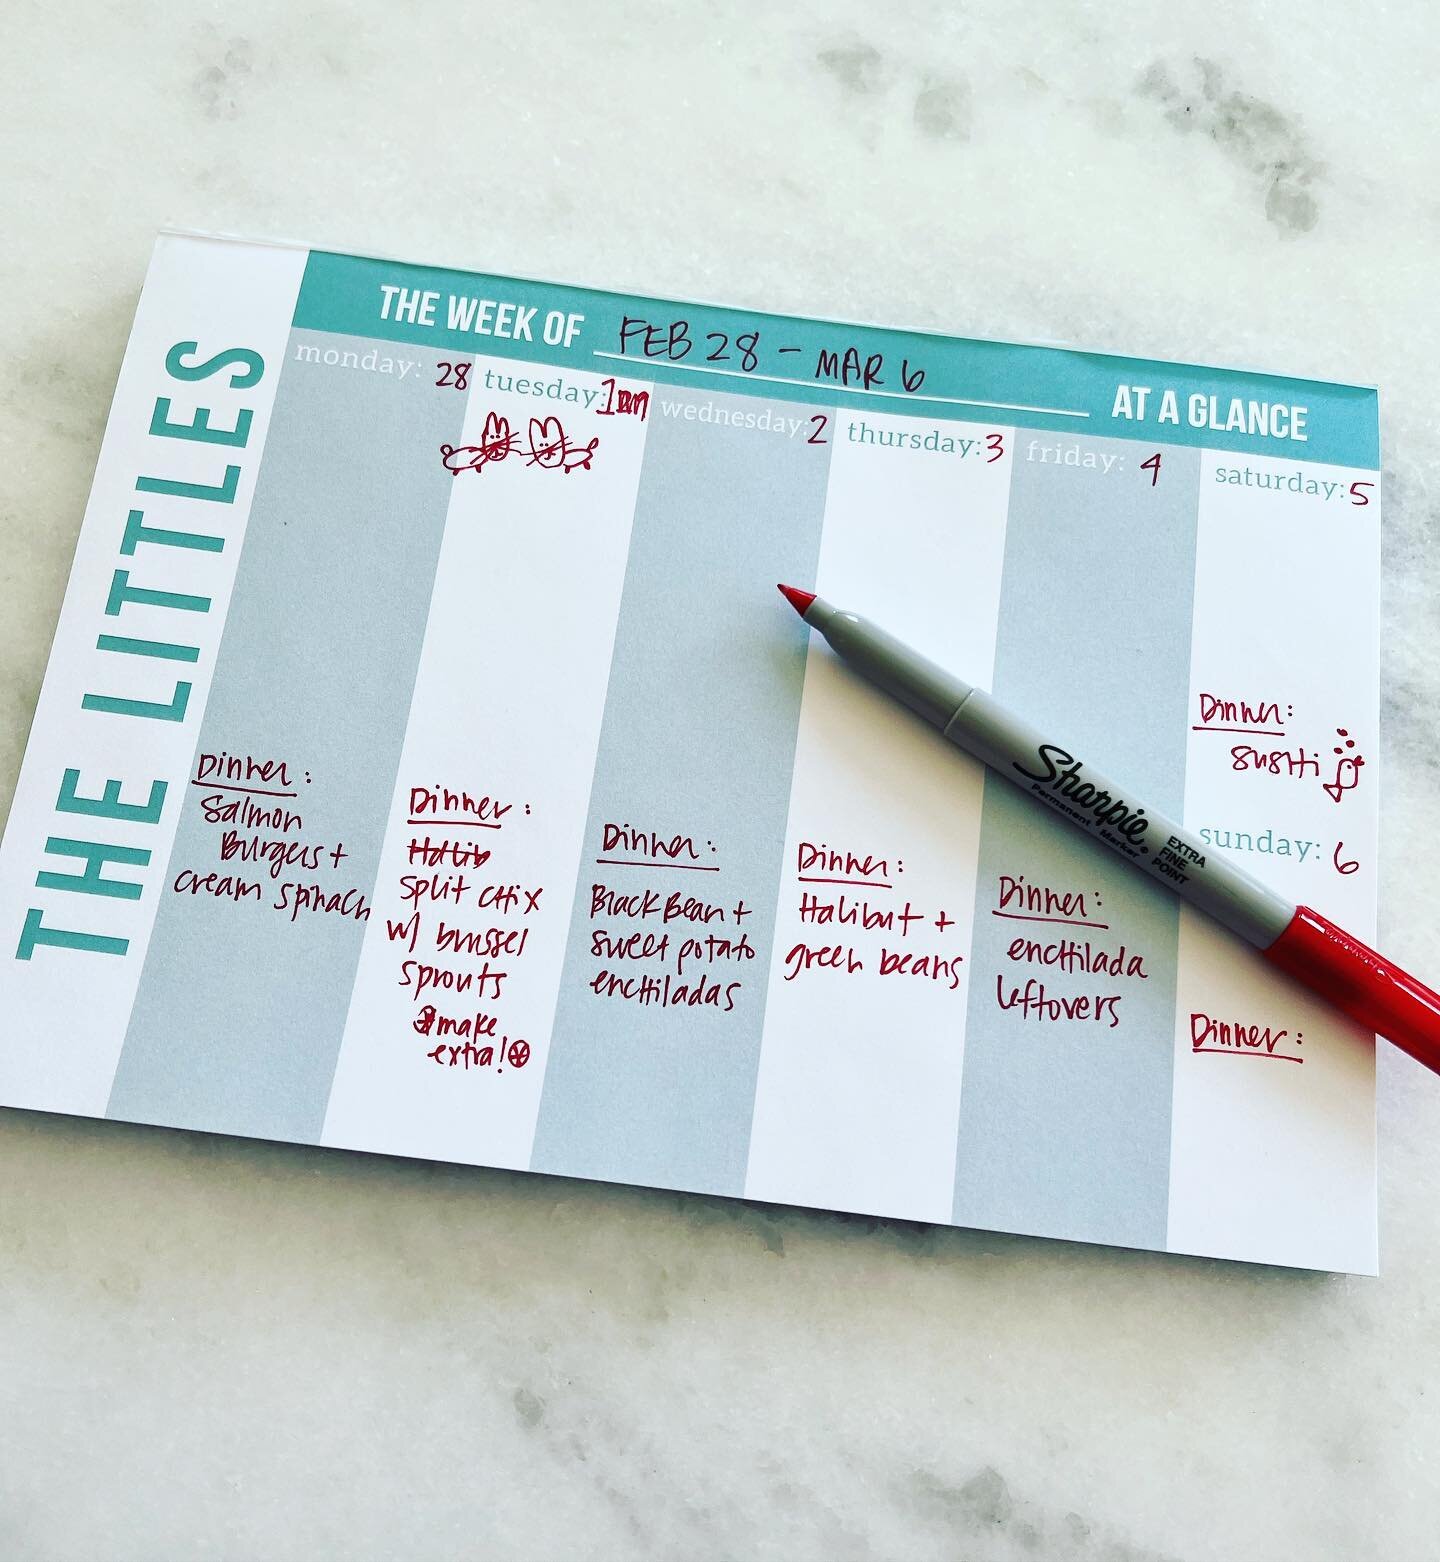 THE LITTLES
THE WEEK OF FEB 28 - MAR 6 AT A GLANCE
monday: 28
Dinner:
Salmon
Burgers +
cream spinach
tuesday: 1
Dinner:
Halib
Split chix
w/ brussel
sprouts
make
extra!
wednesday: 2
Dinner:
Black Bean +
sweet potato
enchiladas
thursday: 3
Dinner:
Halibut +
green beans
friday: 4
Dinner:
enchilada
leftovers
saturday: 5
Dinner:
sushi
sunday: 6
Dinner:
Sharpie.
Permanent Marker
EXTRA
FINE
POINT